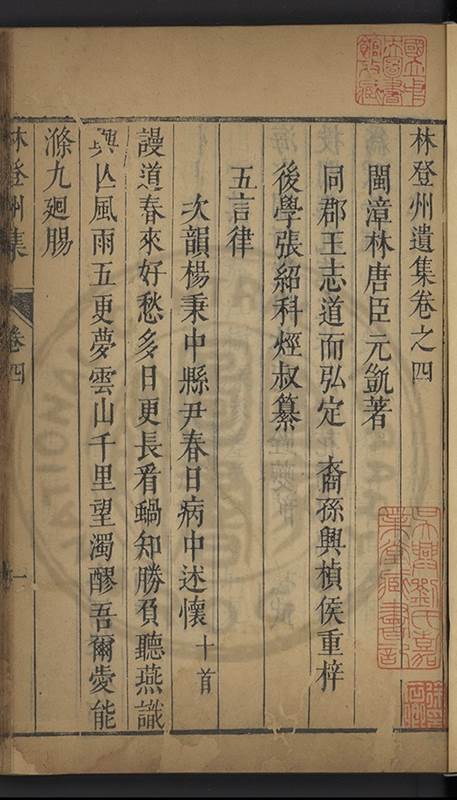 林登州遺集卷之四
閩漳林唐臣元凱著
同郡王志道而弘定 裔孫興楨侯重梓
後學張紹科烴叔纂
五言律
次韻楊秉中縣尹春日病中述懷十首
謾道春來好愁多日更長看蝸知勝負聽燕識
興亡風雨五更夢雲山千里望濁醪吾爾愛能
滌九廻腸
林登州集 卷四 一
國立中央圖書館收藏
吳興劉氏嘉業堂藏書印